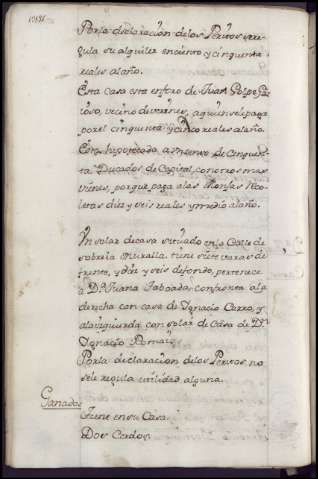 Por la declaración de los Peritos se re-
gula su alquiler en ciento y cinquenta
reales al año.
Esta casa este en foro de Juan
vecino de a quien se le paga
por el cinquenta y cinco reales al año.
Esta hipotecada a un censo de cinquen-
ta Ducados de Capital, con otros mas
vienes, por que paga a las Monjas Reco-
letas diez y seis reales y medio al año.
Un solar de casa situado en la Calle de
sobre la Muralla tiene siete varas de
frente, y diez y seis de fondo, pertenece
a D.ª Juana Taboada, confronta a la
derecha con casa de Ignacio Carro, y
a la izquierda con solar de Casa de D.n
Ignacio
Por la declaración de los Peritos no
se le regula utilidad alguna.
Ganados
Tiene en su Casa
Dos Cerdos.